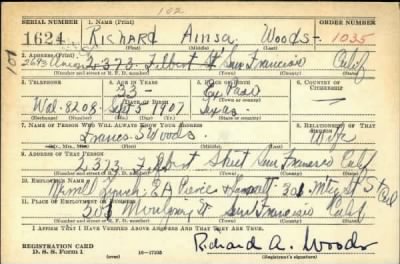 102
SERIAL NUMBER 1. NAME (Print) ORDER NUMBER
1624 RICHARD AINSA WOODS 1035
(First) (Middle) (Last)
101
2. ADDRESS (Print)
2373 Filbert St San Francisco Calif
(Number and street or R. F. D. number) (Town) (County) (State)
3. TELEPHONE 4. AGE IN YEARS 5. PLACE OF BIRTH 6. COUNTRY OF CITIZENSHIP
33 El Paso
DATE OF BIRTH (Town or county)
Wal-8208 Sept 3 1907 Texas
(Exchange) (Number) (Mo.) (Day) (Yr.) (State or country)
7. NAME OF PERSON WHO WILL ALWAYS KNOW YOUR ADDRESS 8. RELATIONSHIP OF THAT PERSON
Frances Woods Wife
(Mr., Mrs., Miss) (First) (Middle) (Last)
9. ADDRESS OF THAT PERSON
2373 Filbert Street San Francisco Calif
(Number and street or R. F. D. number) (Town) (County) (State)
10. EMPLOYER'S NAME
Merrill Lynch E A Pierce 301 Mtgy St SF Cal
11. PLACE OF EMPLOYMENT OR BUSINESS
301 Montgomery St San Francisco Calif
(Number and street or R. F. D. number) (Town) (County) (State)
I AFFIRM THAT I HAVE VERIFIED ABOVE ANSWERS AND THAT THEY ARE TRUE.
REGISTRATION CARD
D. S. S. Form 1 16-17105 Richard A. Woods
(Registrant's signature)